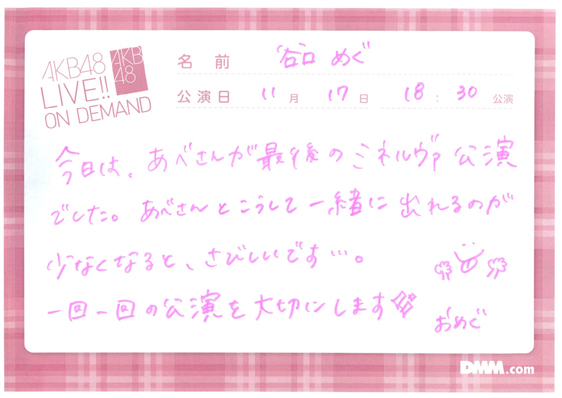 AKB48
LIVE!!
ON DEMAND
AKB
48
名前 谷口 めぐ
公演日 11月 17日 18:30 公演
今日は、あべさんが最後のミネルヴァ公演
でした。あべさんとこうして一緒に出れるのが
少なくなると、さびしいです…。
一回一回の公演を大切にします
おめぐ
DMM.com